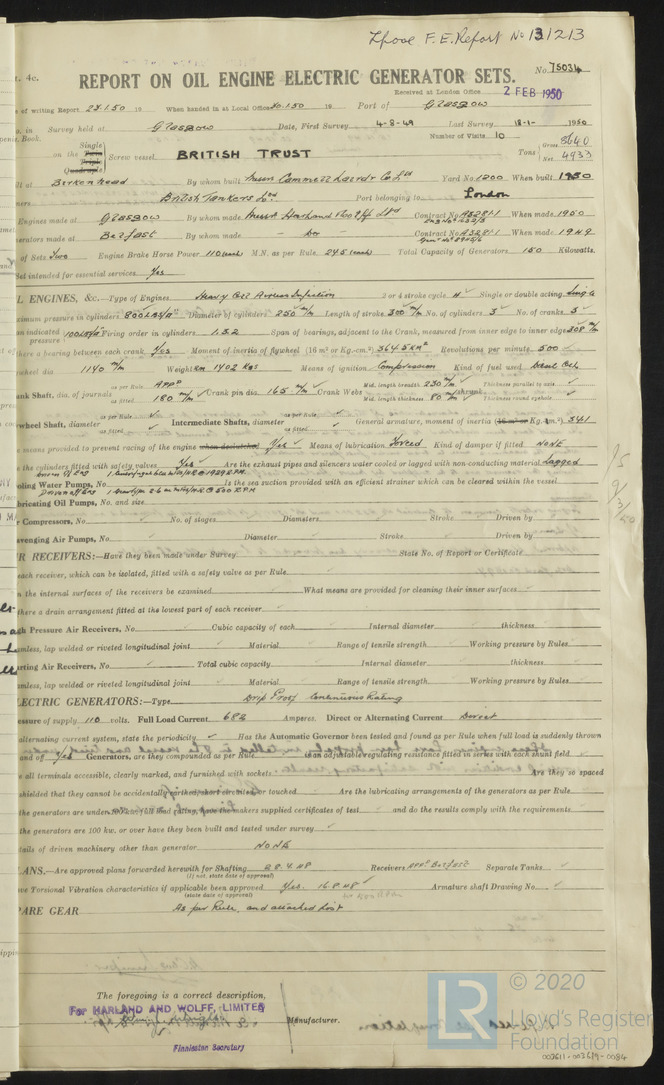 F.E. Report No 13121
t. 4c.
REPORT ON OIL ENGINE ELECTRIC GENERATOR SETS.
No. 75034
Received at London Office 2 FEB 1950
of writing Report 24.1.50 19 When handed in at Local Office 19 Port of Glasgow
in Survey held at Glasgow Date, First Survey 4-8-49 Last Survey 18-1- 1950
Book. Number of Visits 10
on the Single Twin Triple Quadruple Screw vessel BRITISH TRUST Tons Gross 8640 Net 4933
Built at Birkenhead By whom built Messrs Cammell Laird & Co Ltd Yard No. 1200 When built 1950
British Tankers Ltd Port belonging to London
Engines made at Glasgow By whom made Messrs Harland & Wolff Ltd Contract No. When made 1950
Generators made at Belfast By whom made - Do - Contract No. When made 1949
of Sets Two Engine Brake Horse Power 110 each M.N. as per Rule 24.5 each Total Capacity of Generators 150 Kilowatts.
Set intended for essential services Yes
OIL ENGINES, &c.—Type of Engines Heavy Oil Airless Injection 2 or 4 stroke cycle 4 Single or double acting Single
Maximum pressure in cylinders 800 Lbs/□" Diameter of cylinders 250 m/m Length of stroke 300 m/m No. of cylinders 3 No. of cranks 3
indicated pressure 100 Lbs/□" Firing order in cylinders 1.3.2 Span of bearings, adjacent to the Crank, measured from inner edge to inner edge 308 m/m
there a bearing between each crank Yes Moment of inertia of flywheel (16 m² or Kg.-cm.²) 364.5 KM² Revolutions per minute 500
wheel dia 1140 m/m Weight 1402 Kgs Means of ignition Compression Kind of fuel used Diesel Oil
Crank Shaft, dia. of journals as per Rule APPD as fitted 180 m/m Crank pin dia. 165 m/m Crank Webs Mid. length breadth 230 m/m Mid. length thickness 80 m/m Thickness parallel to axis Thickness round eyehole
Flywheel Shaft, diameter as per Rule as fitted Intermediate Shafts, diameter as per Rule as fitted General armature, moment of inertia (16 m² or Kg.-cm.²) 341
means provided to prevent racing of the engine when declutched Yes Means of lubrication Forced Kind of damper if fitted NONE
the cylinders fitted with safety valves Yes Are the exhaust pipes and silencers water cooled or lagged with non-conducting material Lagged
Cooling Water Pumps, No. Is the sea suction provided with an efficient strainer which can be cleared within the vessel
Lubricating Oil Pumps, No. and size
Air Compressors, No. No. of stages Diameters Stroke Driven by
Scavenging Air Pumps, No. Diameter Stroke Driven by
AIR RECEIVERS:—Have they been made under Survey State No. of Report or Certificate
each receiver, which can be isolated, fitted with a safety valve as per Rule
the internal surfaces of the receivers be examined What means are provided for cleaning their inner surfaces
there a drain arrangement fitted at the lowest part of each receiver
High Pressure Air Receivers, No. Cubic capacity of each Internal diameter thickness
Seamless, lap welded or riveted longitudinal joint Material Range of tensile strength Working pressure by Rules
Starting Air Receivers, No. Total cubic capacity Internal diameter thickness
Seamless, lap welded or riveted longitudinal joint Material Range of tensile strength Working pressure by Rules
ELECTRIC GENERATORS:—Type Drip Proof Continuous Rating
Pressure of supply 110 volts. Full Load Current 682 Amperes. Direct or Alternating Current Direct
alternating current system, state the periodicity Has the Automatic Governor been tested and found as per Rule when full load is suddenly thrown
and off Yes Generators, are they compounded as per Rule is an adjustable regulating resistance fitted in series with each shunt field
all terminals accessible, clearly marked, and furnished with sockets Are they so spaced
shielded that they cannot be accidentally earthed, short circuited or touched Are the lubricating arrangements of the generators as per Rule
the generators are under 100 kw. full load rating, have the makers supplied certificates of test and do the results comply with the requirements
the generators are 100 kw. or over have they been built and tested under survey
Details of driven machinery other than generator NONE
PLANS.—Are approved plans forwarded herewith for Shafting 28.4.48 Receivers Separate Tanks
(If not, state date of approval)
Have Torsional Vibration characteristics if applicable been approved Yes. 16.8.48 Armature shaft Drawing No.
(state date of approval)
SPARE GEAR As per Rule, and attached List
The foregoing is a correct description,
For HARLAND AND WOLFF, LIMITED
Manufacturer.
Finnieston Secretary
LR © 2020
Lloyd's Register
Foundation
003611-003619-0084